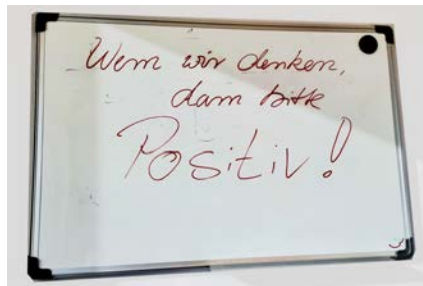 Wenn wir denken,
dann bitte
Positiv!